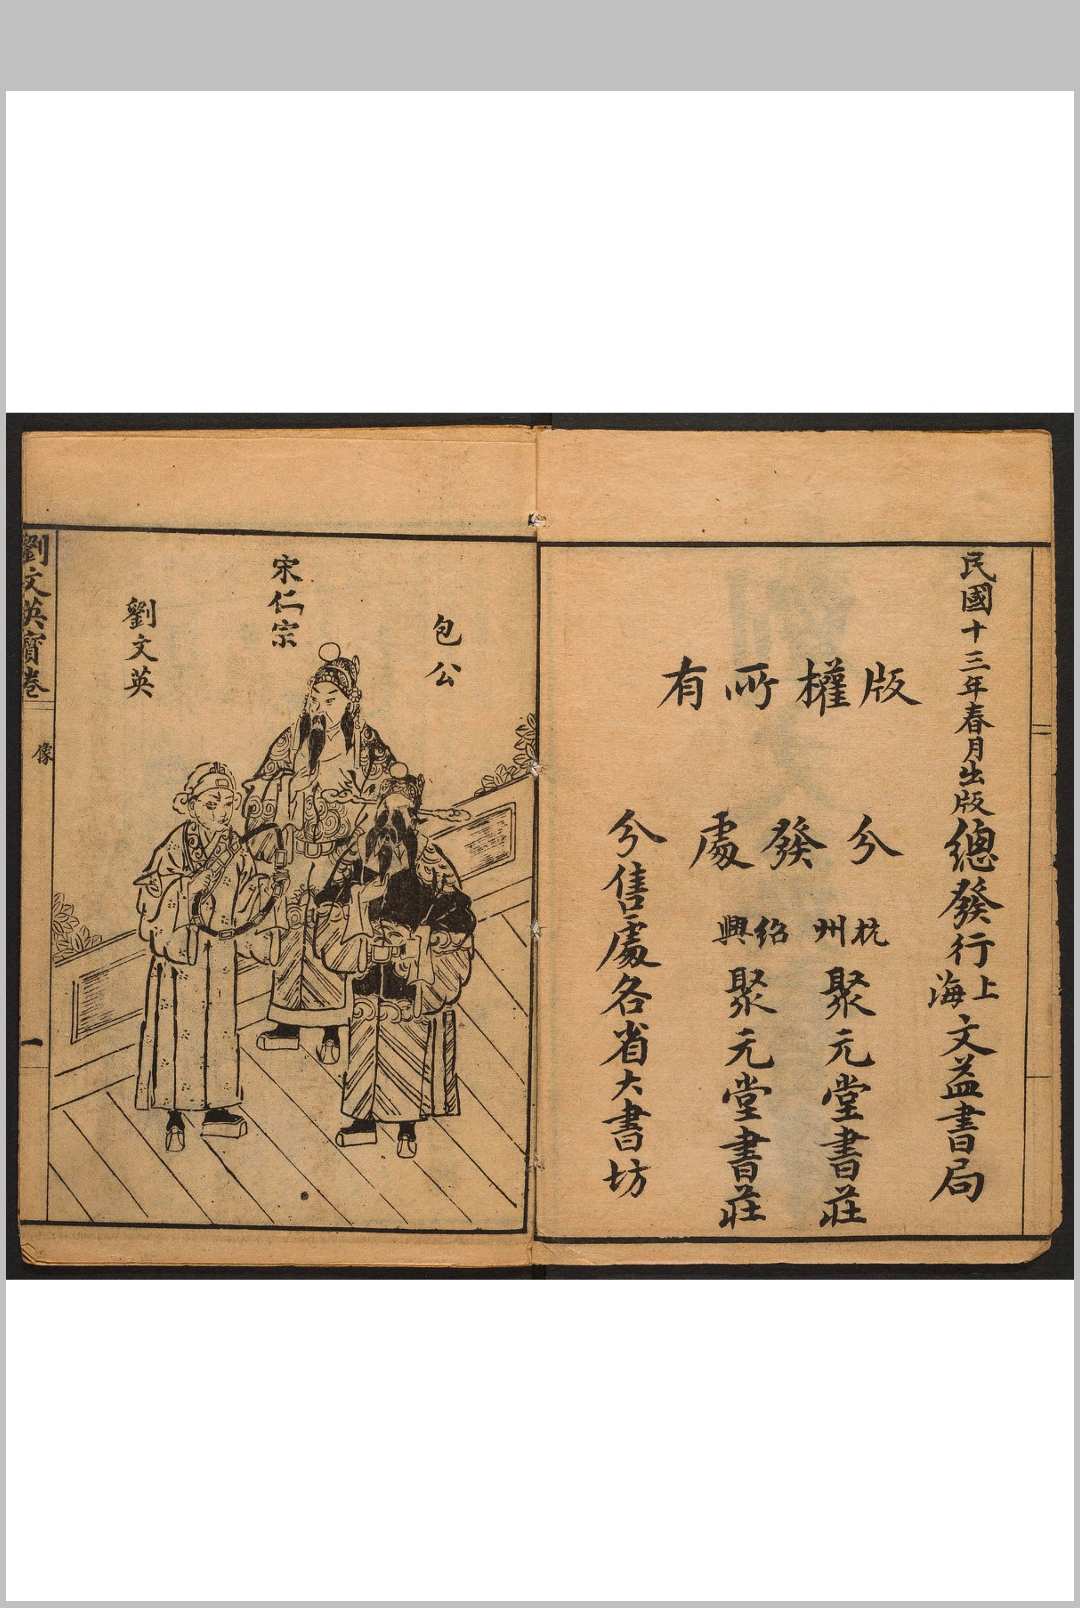 民國十三年春月出版
總發行上海文益書局
版權所有
分發處
杭州聚元堂書莊
紹興聚元堂書莊
分售處各省大書坊
包公
宋仁宗
劉文英
劉文英寶卷
像
一